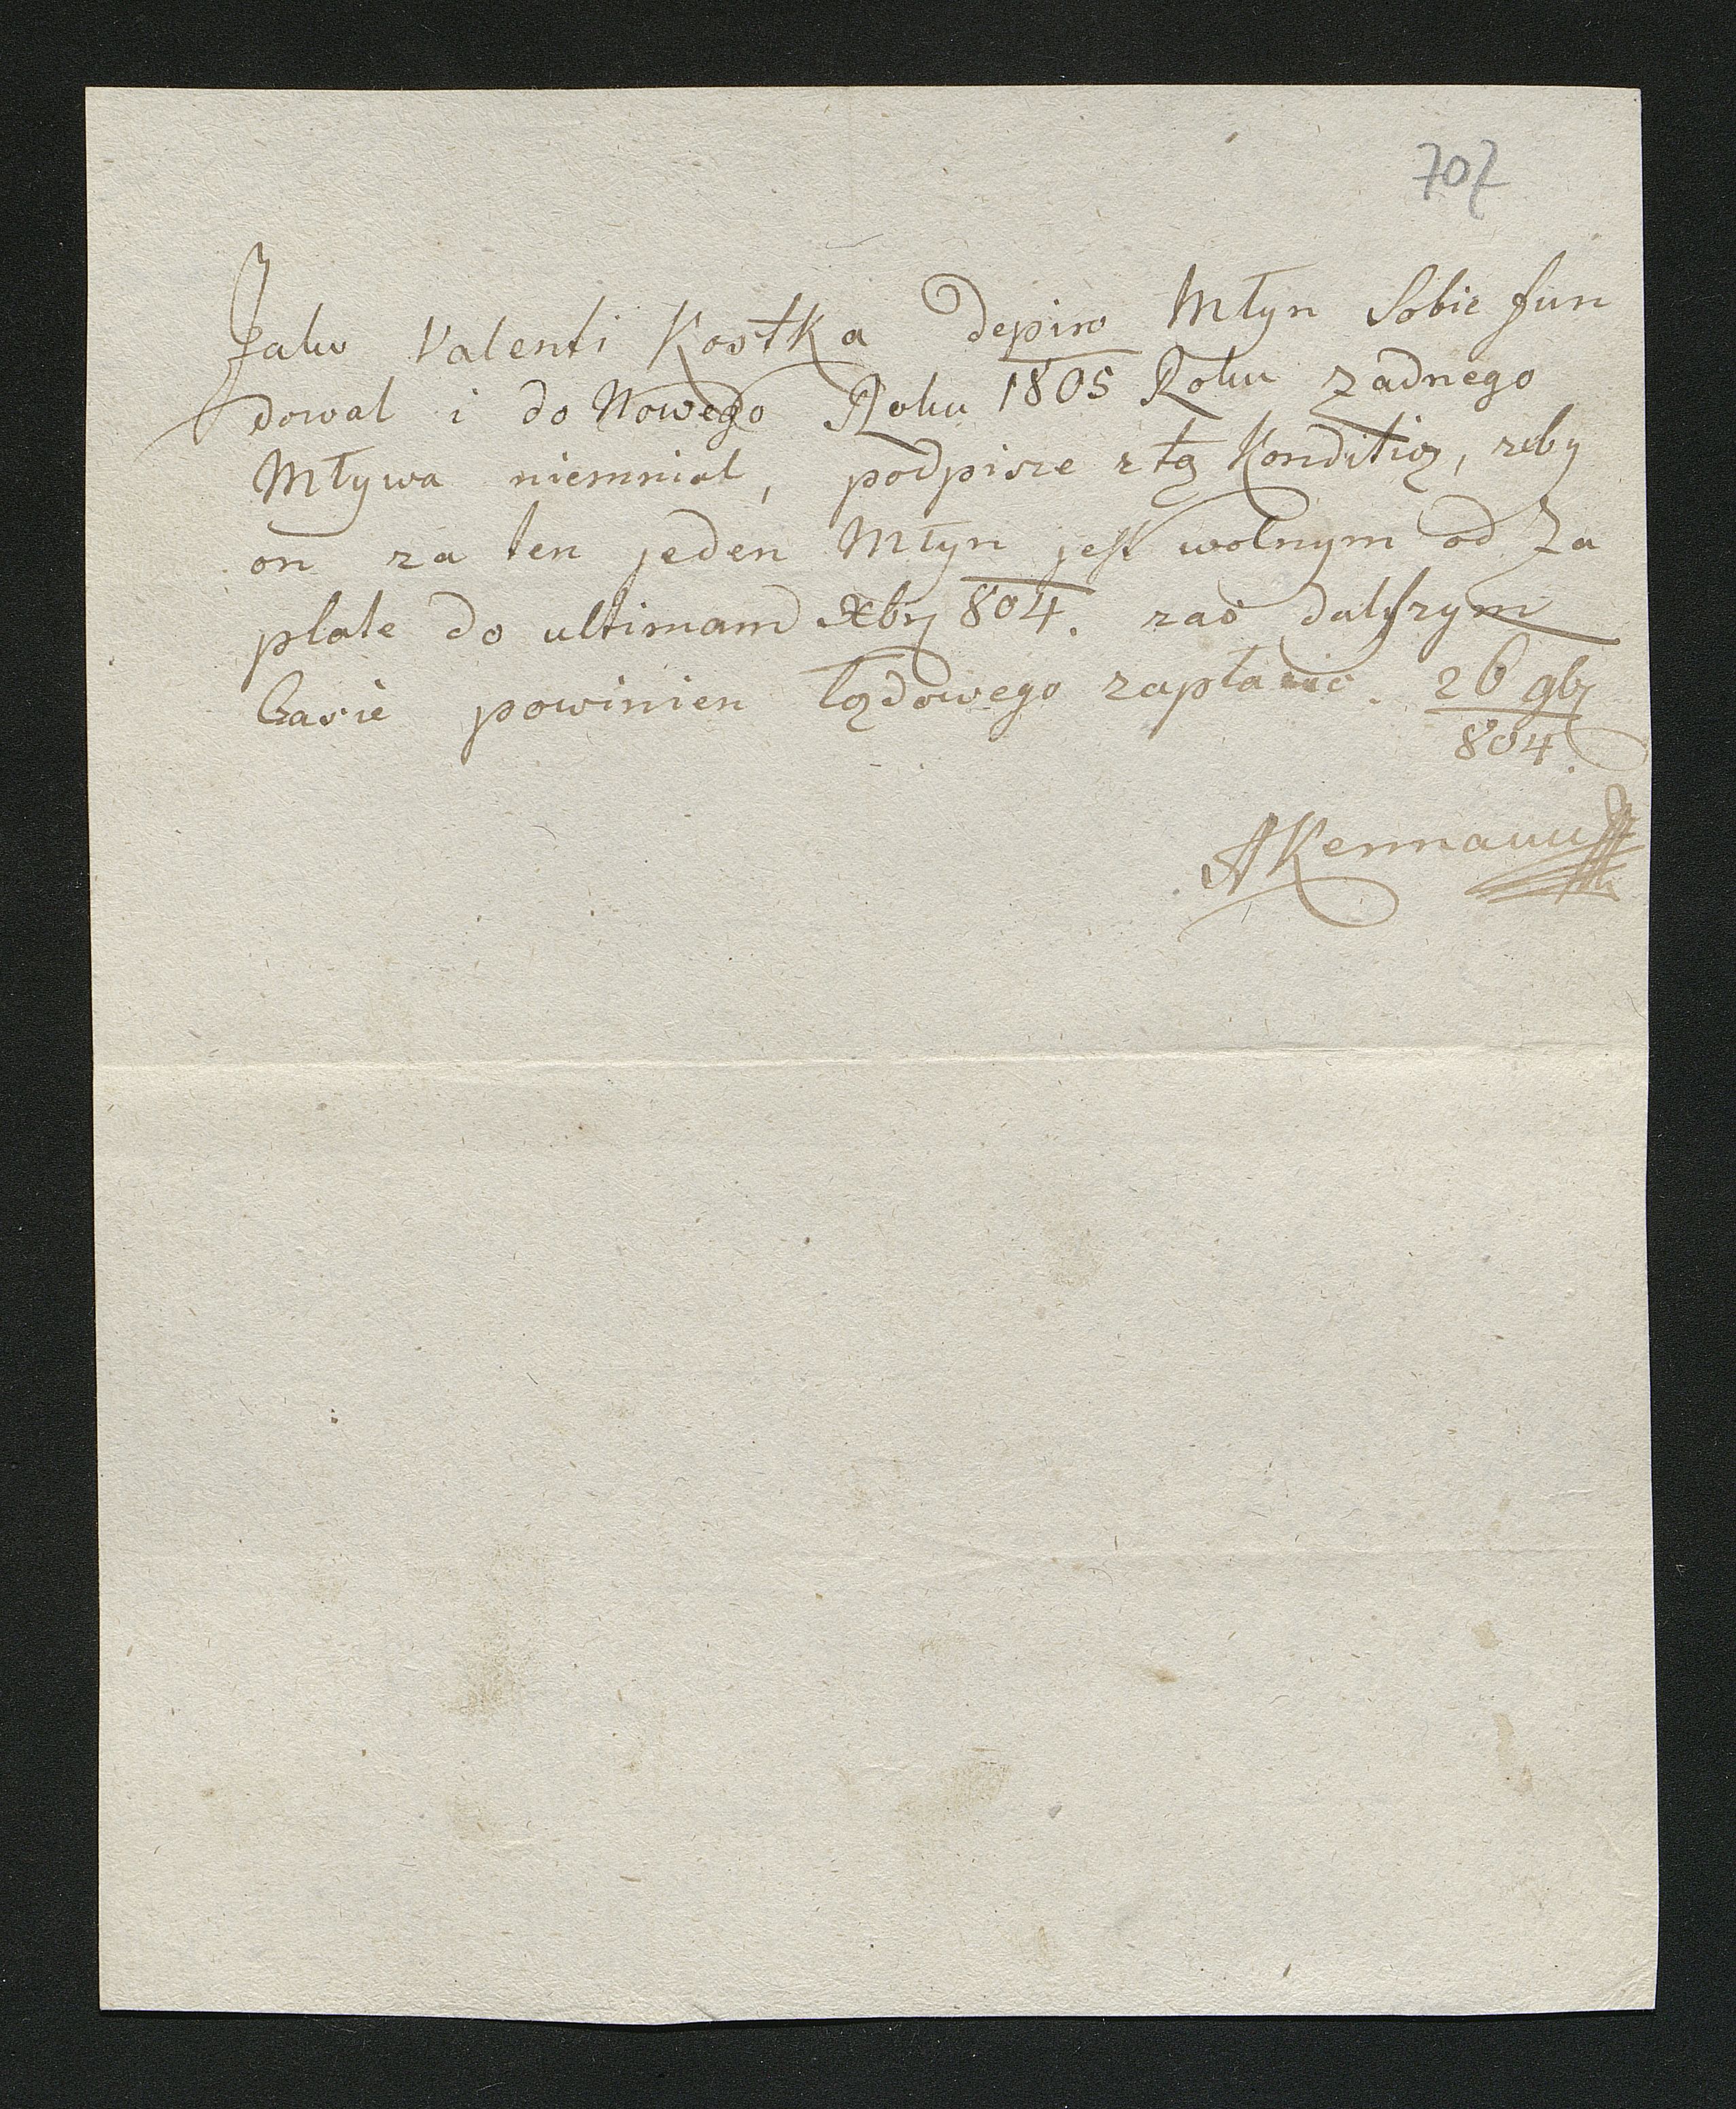 707
Jako Valenti Kostka depiro Młyn Sobie fun
dowal i do Nowego Roku 1805 Roku zadnego
Mływa niemniał, podpisze z tą Konditią, zeby
on za ten jeden Młyn jest wolnym od Za
plate do ultimam Xbrj 804. zaś dalszym
Czasie powinien lądowego zapłacić. 26 9brj
804.
AKermann